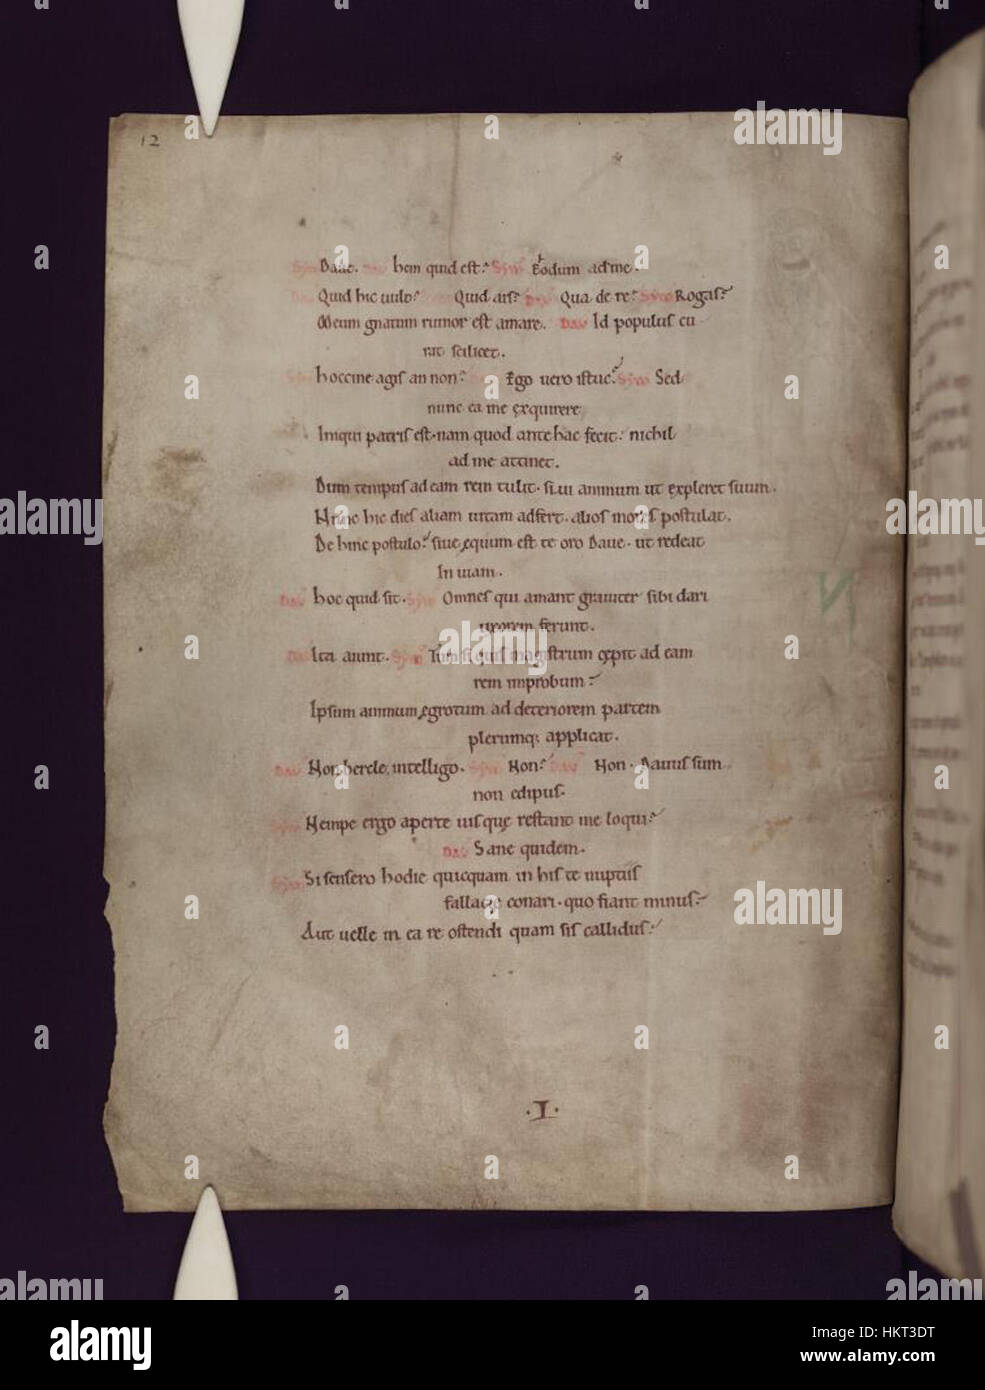 12
Sym Daue. Dav hem quid est? Sym Eodum ad me.
Dav Quid hic uult? Quid ais? Dav Qua de re? Sym Rogas?
Meum gnatum rumor est amare. Dav Id populus cu
rat scilicet.
hoccine agis an non? Ego uero istuc. Sym Sed
nunc ea me exquirere
Iniqui patris est. nam quod ante hac fecit. nichil
ad me attinet.
Dum tempus ad eam rem tulit. siui animum ut expleret suum.
Nunc hic dies aliam uitam adfert. alios mores postulat.
De hinc postulo. siue ęquum est te oro Daue. ut redeat
In uiam.
Dav hoc quid sit. Sym Omnes qui amant grauiter sibi dari
uxorem ferunt.
Dav Ita aiunt. Sym Tum si quis magistrum cępit ad eam
rem improbum
Ipsum animum ęgrotum ad deteriorem partem
plerumq; applicat.
Dav Non hercle intelligo. Sym Non? Dav Non. Dauus sum
non edipus.
Sym Nempe ergo aperte uis quę restant me loqui?
Dav Sane quidem.
Sym Si sensero hodie quicquam in his te nuptiis
fallacię conari. quo fiant minus
Aut uelle in ea re ostendi quam sis callidus.
N
.I.
a alamy
alamy
Image ID: HKT3DT
www.alamy.com